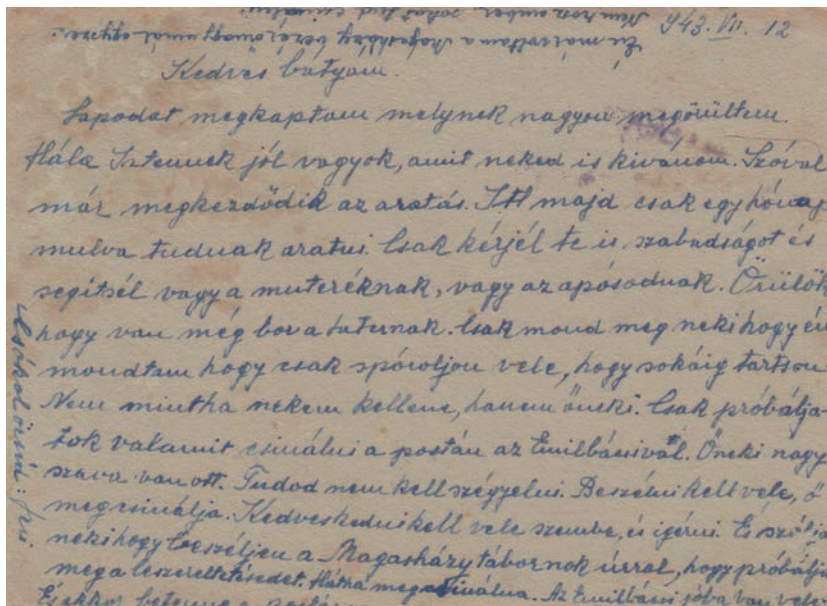 943. VII. 12
Én már voltam a Magasházy
Kedves bátyám.
Lapodat megkaptam melynek nagyon megörültem.
Hála Istennek jól vagyok, amit neked is kivánom. Szóval
már megkezdődik az aratás. Itt majd csak egy hónap
mulva tudnak aratni. Csak kérjél te is szabadságot és
segitsél vagy a muteréknak, vagy az apósodnak. Örülök
hogy van még bora faternak. Csak mond meg neki hogy én
mondtam hogy csak spóroljon vele, hogy sokáig tartson
Nem mintha nekem kellene, hanem öneki. Csak próbálja-
tok valamit csinálni a postán az Emilbácsival. Öneki nagy
szava van ott. Tudod nem kell szégyelni. Beszélni kell vele, ő
megcsinálja. Kedveskedni kell vele szembe, és igérni. És szóljon
neki hogy beszéljen a Magasházy tábornok úrral, hogy próbálja
meg a leszereltetésedet. Hátha megcsinálna. Az Emilbácsi jóba van vele.
És akkor
Csókol öcséd: